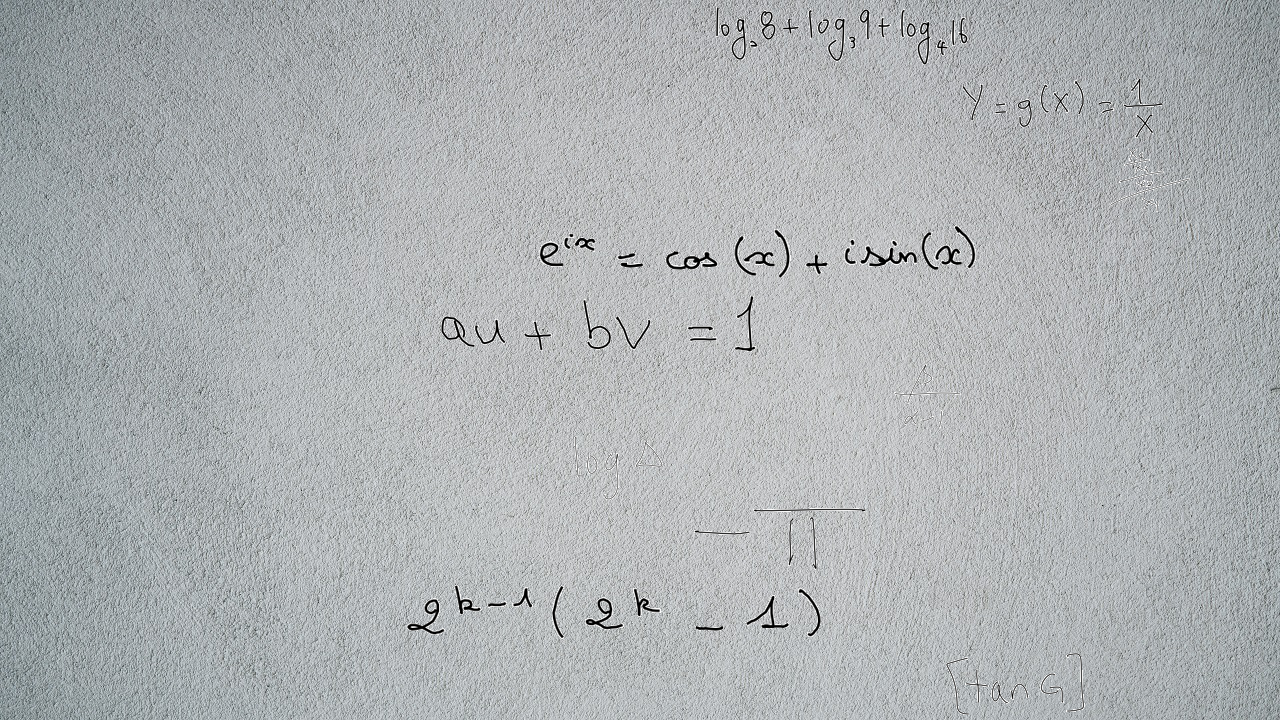 log₂8 + log₃9 + log₄16
Y = g(x) = 1/x
e^{ix} = cos(x) + i sin(x)
au + bv = 1
log Δ
− ‾∏
2^{k-1}(2^k − 1)
[tan G]